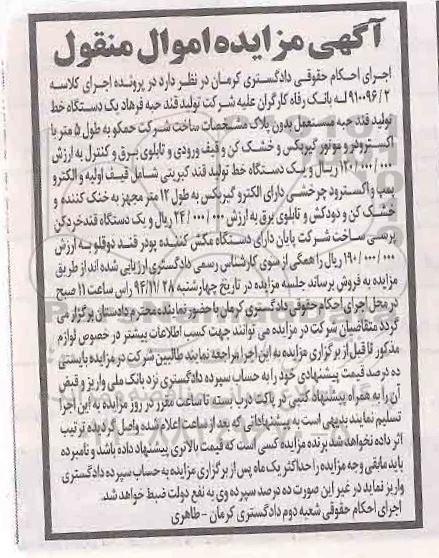 آگهی مزایده اموال منقول
اجرای احکام حقوقی دادگستری کرمان در نظر دارد در پرونده اجرای کلاسه
۹۱۰۰۹۶/۲ له بانک رفاه کارگران علیه شرکت تولید قند حبه فرهاد یک دستگاه خط
تولید قند حبه مستعمل بدون پلاک مشخصات ساخت شرکت حمکو به طول ۵ متر با
اکسترودر و موتور گیربکس و خشک کن و قیف ورودی و تابلوی برق و کنترل به ارزش
۱۲۰/۰۰۰/۰۰۰ ریال و یک دستگاه خط تولید قند کبریتی شامل قیف اولیه و الکترو
پمپ و اکسترود چرخشی دارای الکترو گیربکس به طول ۱۲ متر مجهز به خنک کننده و
خشک کن و دودکش و تابلوی برق به ارزش ۲۴۰/۰۰۰/۰۰۰ ریال و یک دستگاه قند خرد کن
پرسی ساخت شرکت پایان دارای دستگاه مکش کننده پودر قند دوقلو به ارزش
۱۹۰/۰۰۰/۰۰۰ ریال را همگی از سوی کارشناس رسمی دادگستری ارزیابی شده اند از طریق
مزایده به فروش برساند جلسه مزایده در تاریخ چهارشنبه ۹۴/۱۱/۲۸ راس ساعت ۱۱ صبح
در محل اجرای احکام حقوقی دادگستری کرمان با حضور نماینده محترم دادستان برگزار می
گردد متقاضیان شرکت در مزایده می توانند جهت کسب اطلاعات بیشتر در خصوص لوازم
مذکور تا قبل از برگزاری مزایده به این اجرا مراجعه نمایند طالبین شرکت در مزایده بایستی
ده درصد قیمت پیشنهادی خود را به حساب سپرده دادگستری نزد بانک ملی واریز و قبض
آن را به همراه پیشنهاد کتبی در پاکت درب بسته تا ساعت مقرر در روز مزایده به این اجرا
تسلیم نمایند بدیهی است به پیشنهاداتی که بعد از ساعت اعلام شده واصل گردیده ترتیب
اثر داده نخواهد شد برنده مزایده کسی است که قیمت بالاتری پیشنهاد داده باشد و نامبرده
باید مابقی وجه مزایده را حداکثر یک ماه پس از برگزاری مزایده به حساب سپرده دادگستری
واریز نماید در غیر این صورت ده درصد سپرده وی به نفع دولت ضبط خواهد شد.
اجرای احکام حقوقی شعبه دوم دادگستری کرمان - طاهری